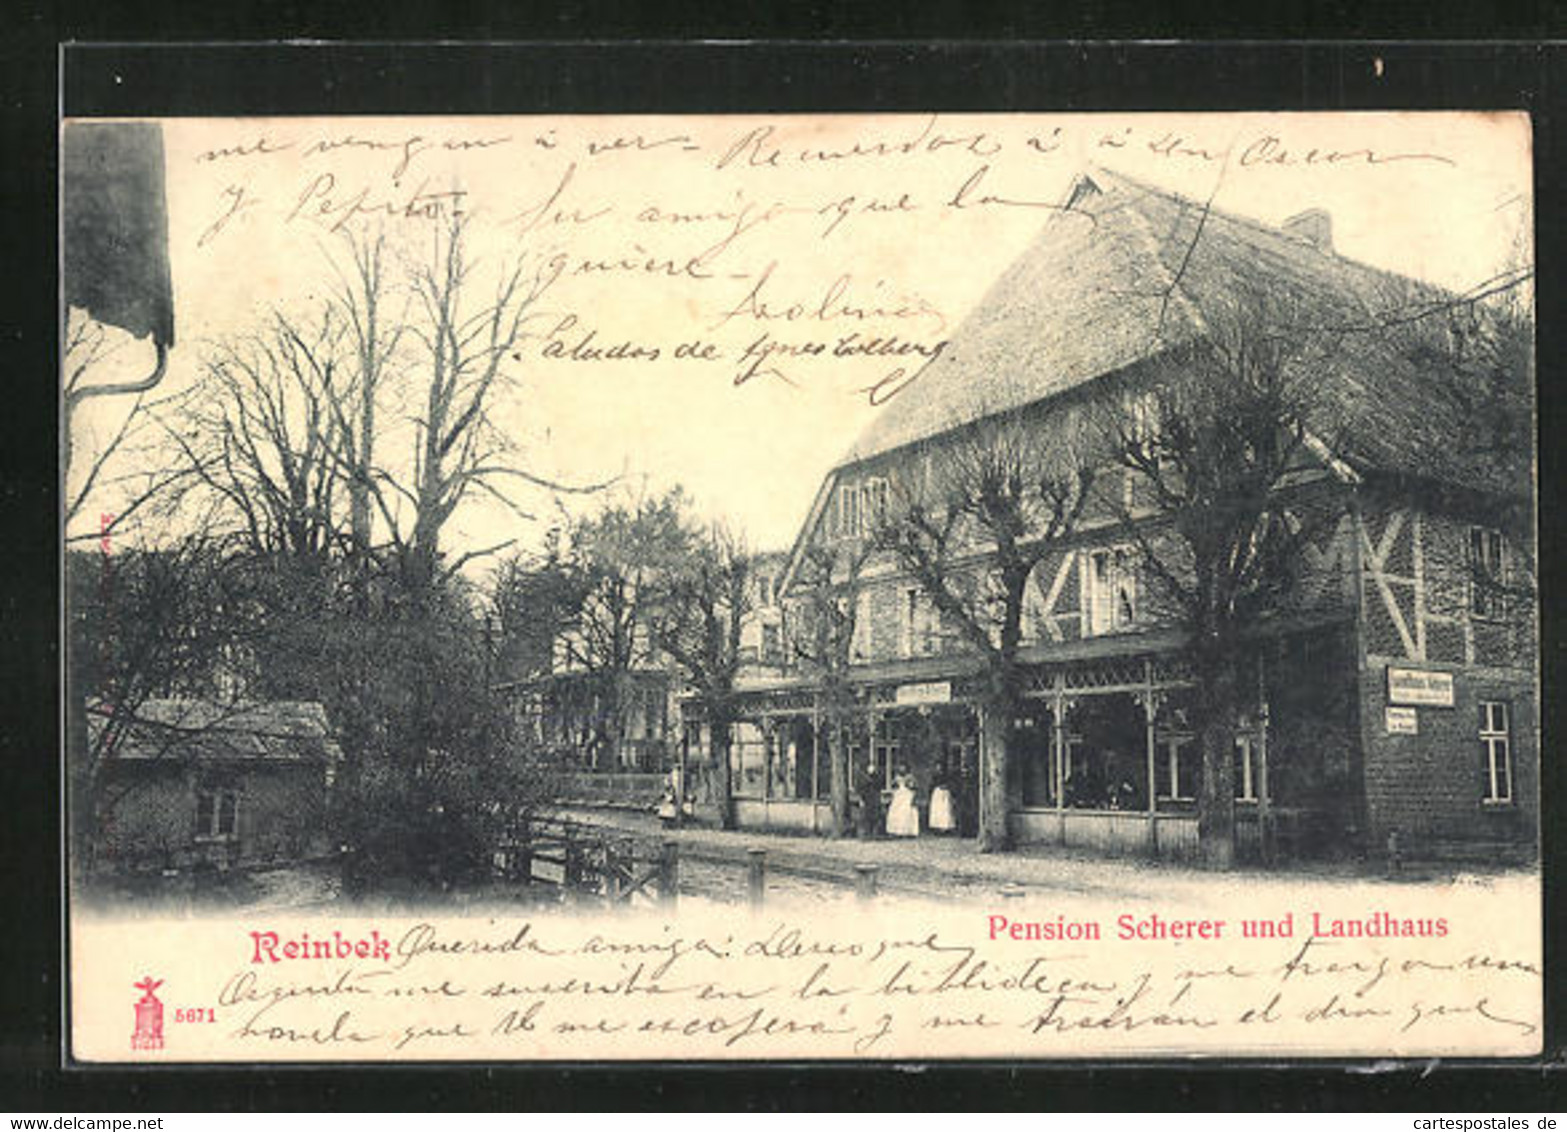 me vengan á ver - Recuerdos á á Oscar
y Pepito. Su amiga que la
quiere -
Saludos de Ignes
Reinbek
Pension Scherer und Landhaus
Querida amiga: Deseo que
me suscriba en la biblioteca y me traiga una
novela que U me escojerá y me trairán el dia que
5671
cartespostales de